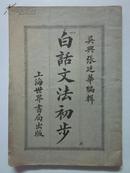 吳興張廷華編輯
白話文法初步
上海世界書局出版